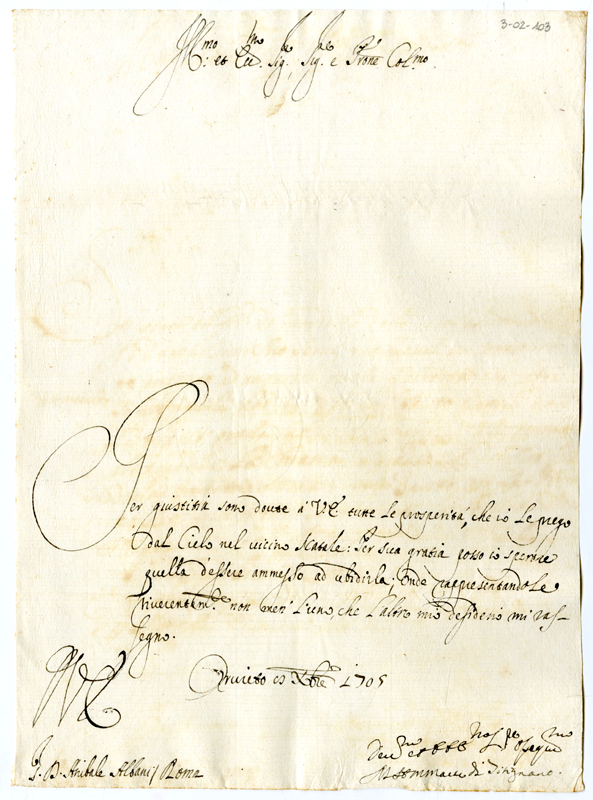 3-02-103
Ill.mo et Ecc.mo Sig.re Sig.re e Prone Col.mo
Per giustitia sono dovute à V.E. tutte le prosperità, che io Le prego
dal Cielo nel vicino Natale: Per sua gratia posso io sperare
quella dessere ammesso ad ubidirla; Onde rappresentandole
riverentem.te non men l'uno, che l'altro mio desiderio mi ras-
segno.
Orvieto Xbre 1705
V.E.
D. Anibale Albani / Roma
Dev.mo et Obb.mo
di